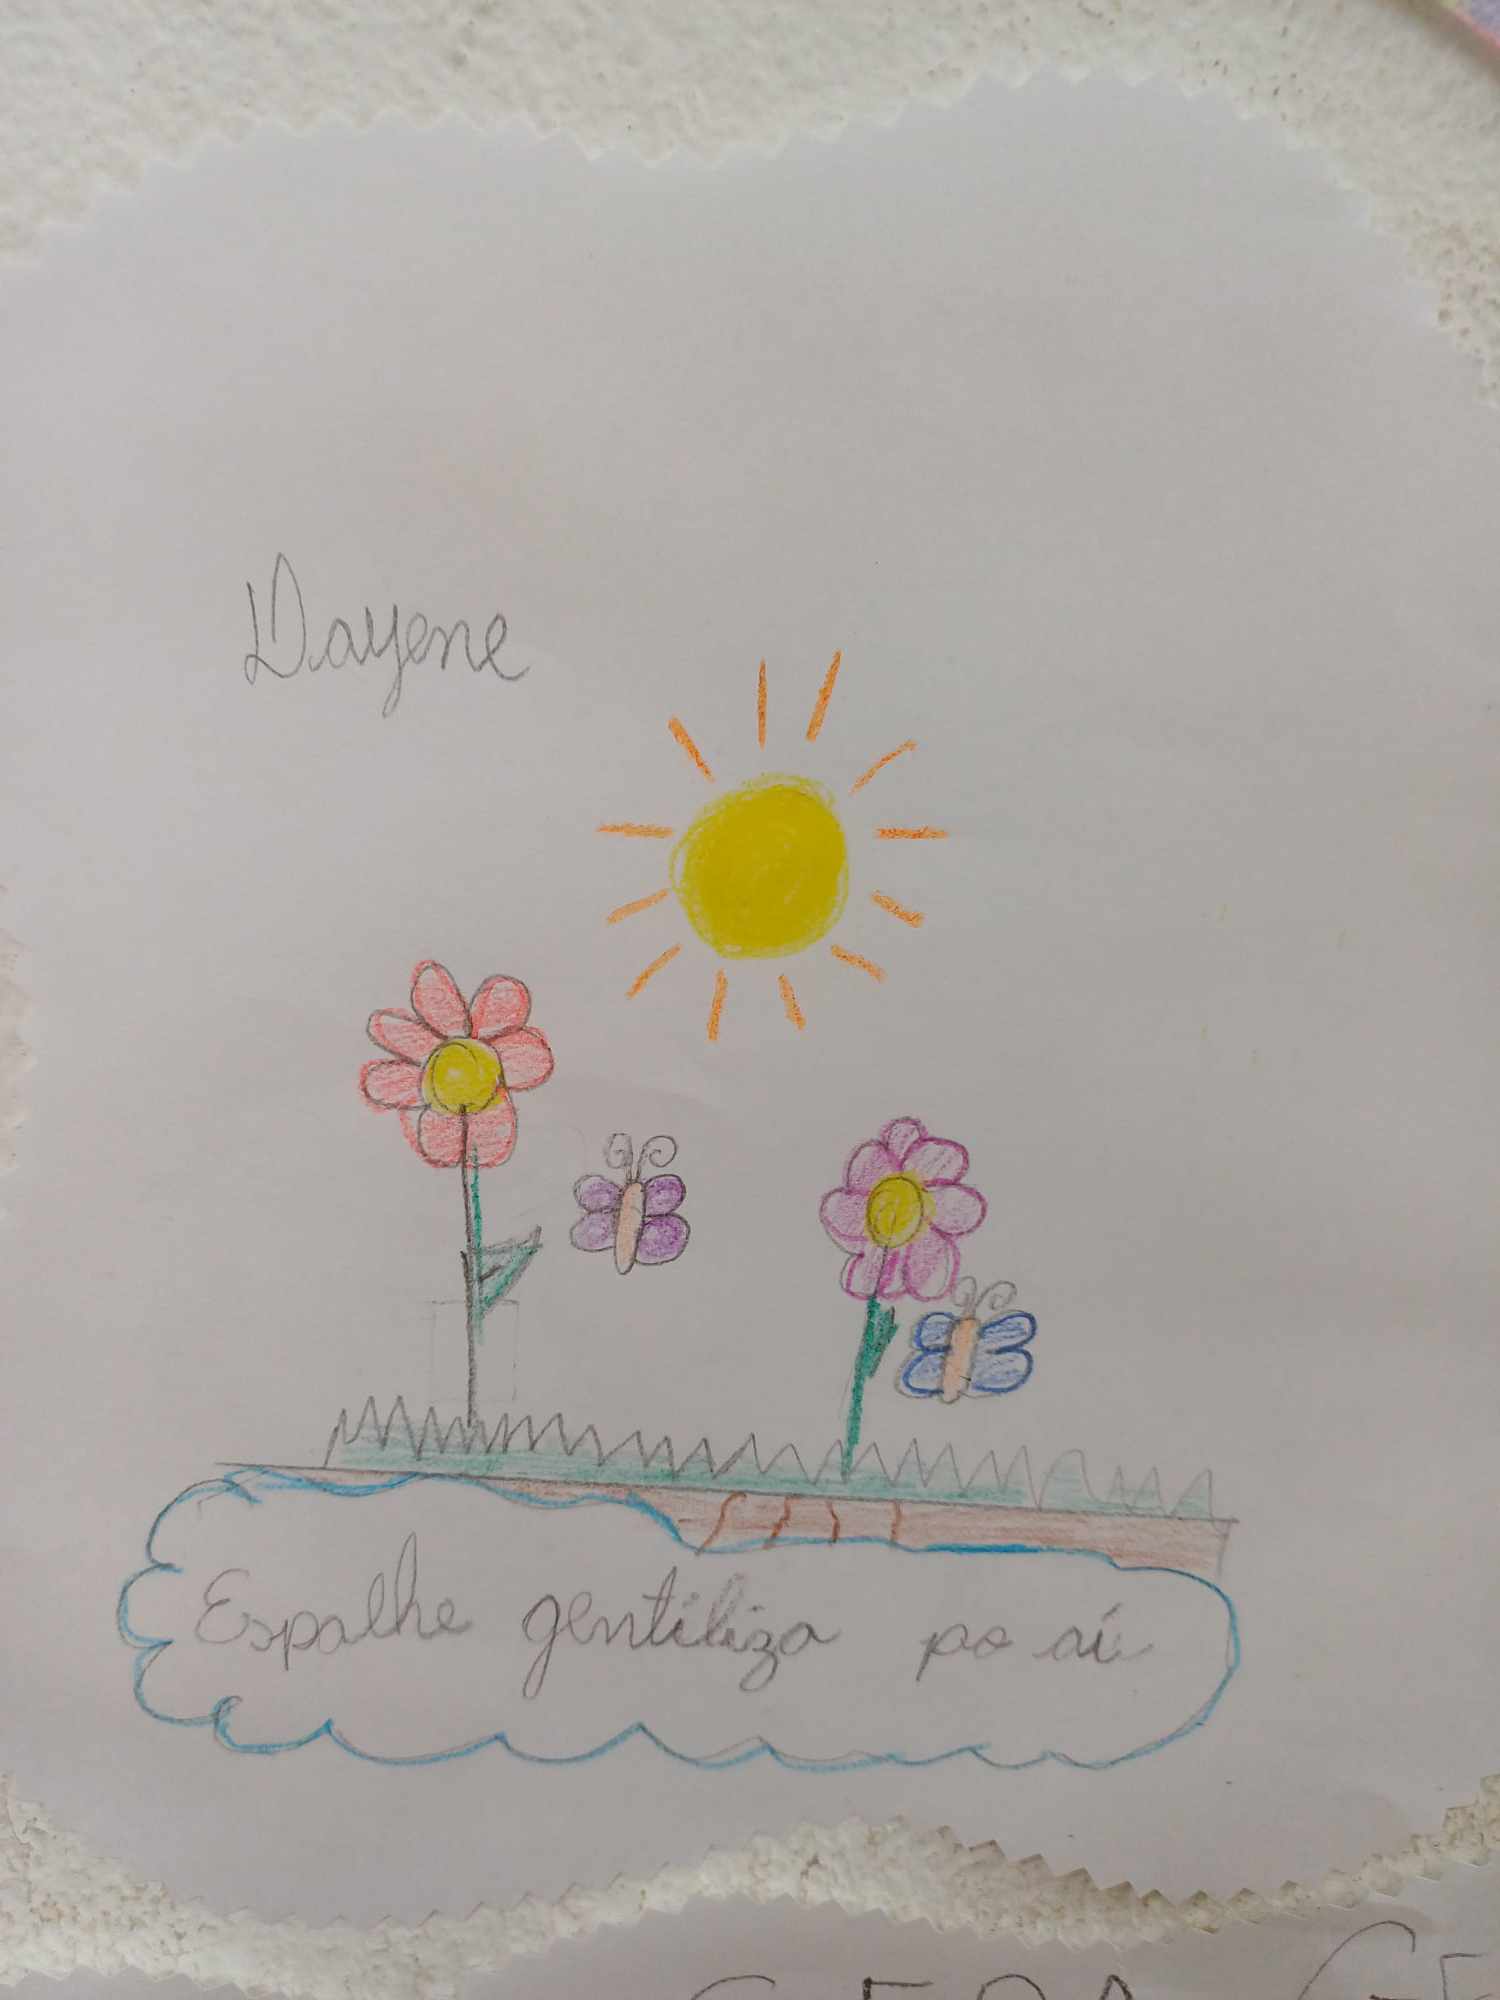 Dayene
Espalhe gentiliza po aí